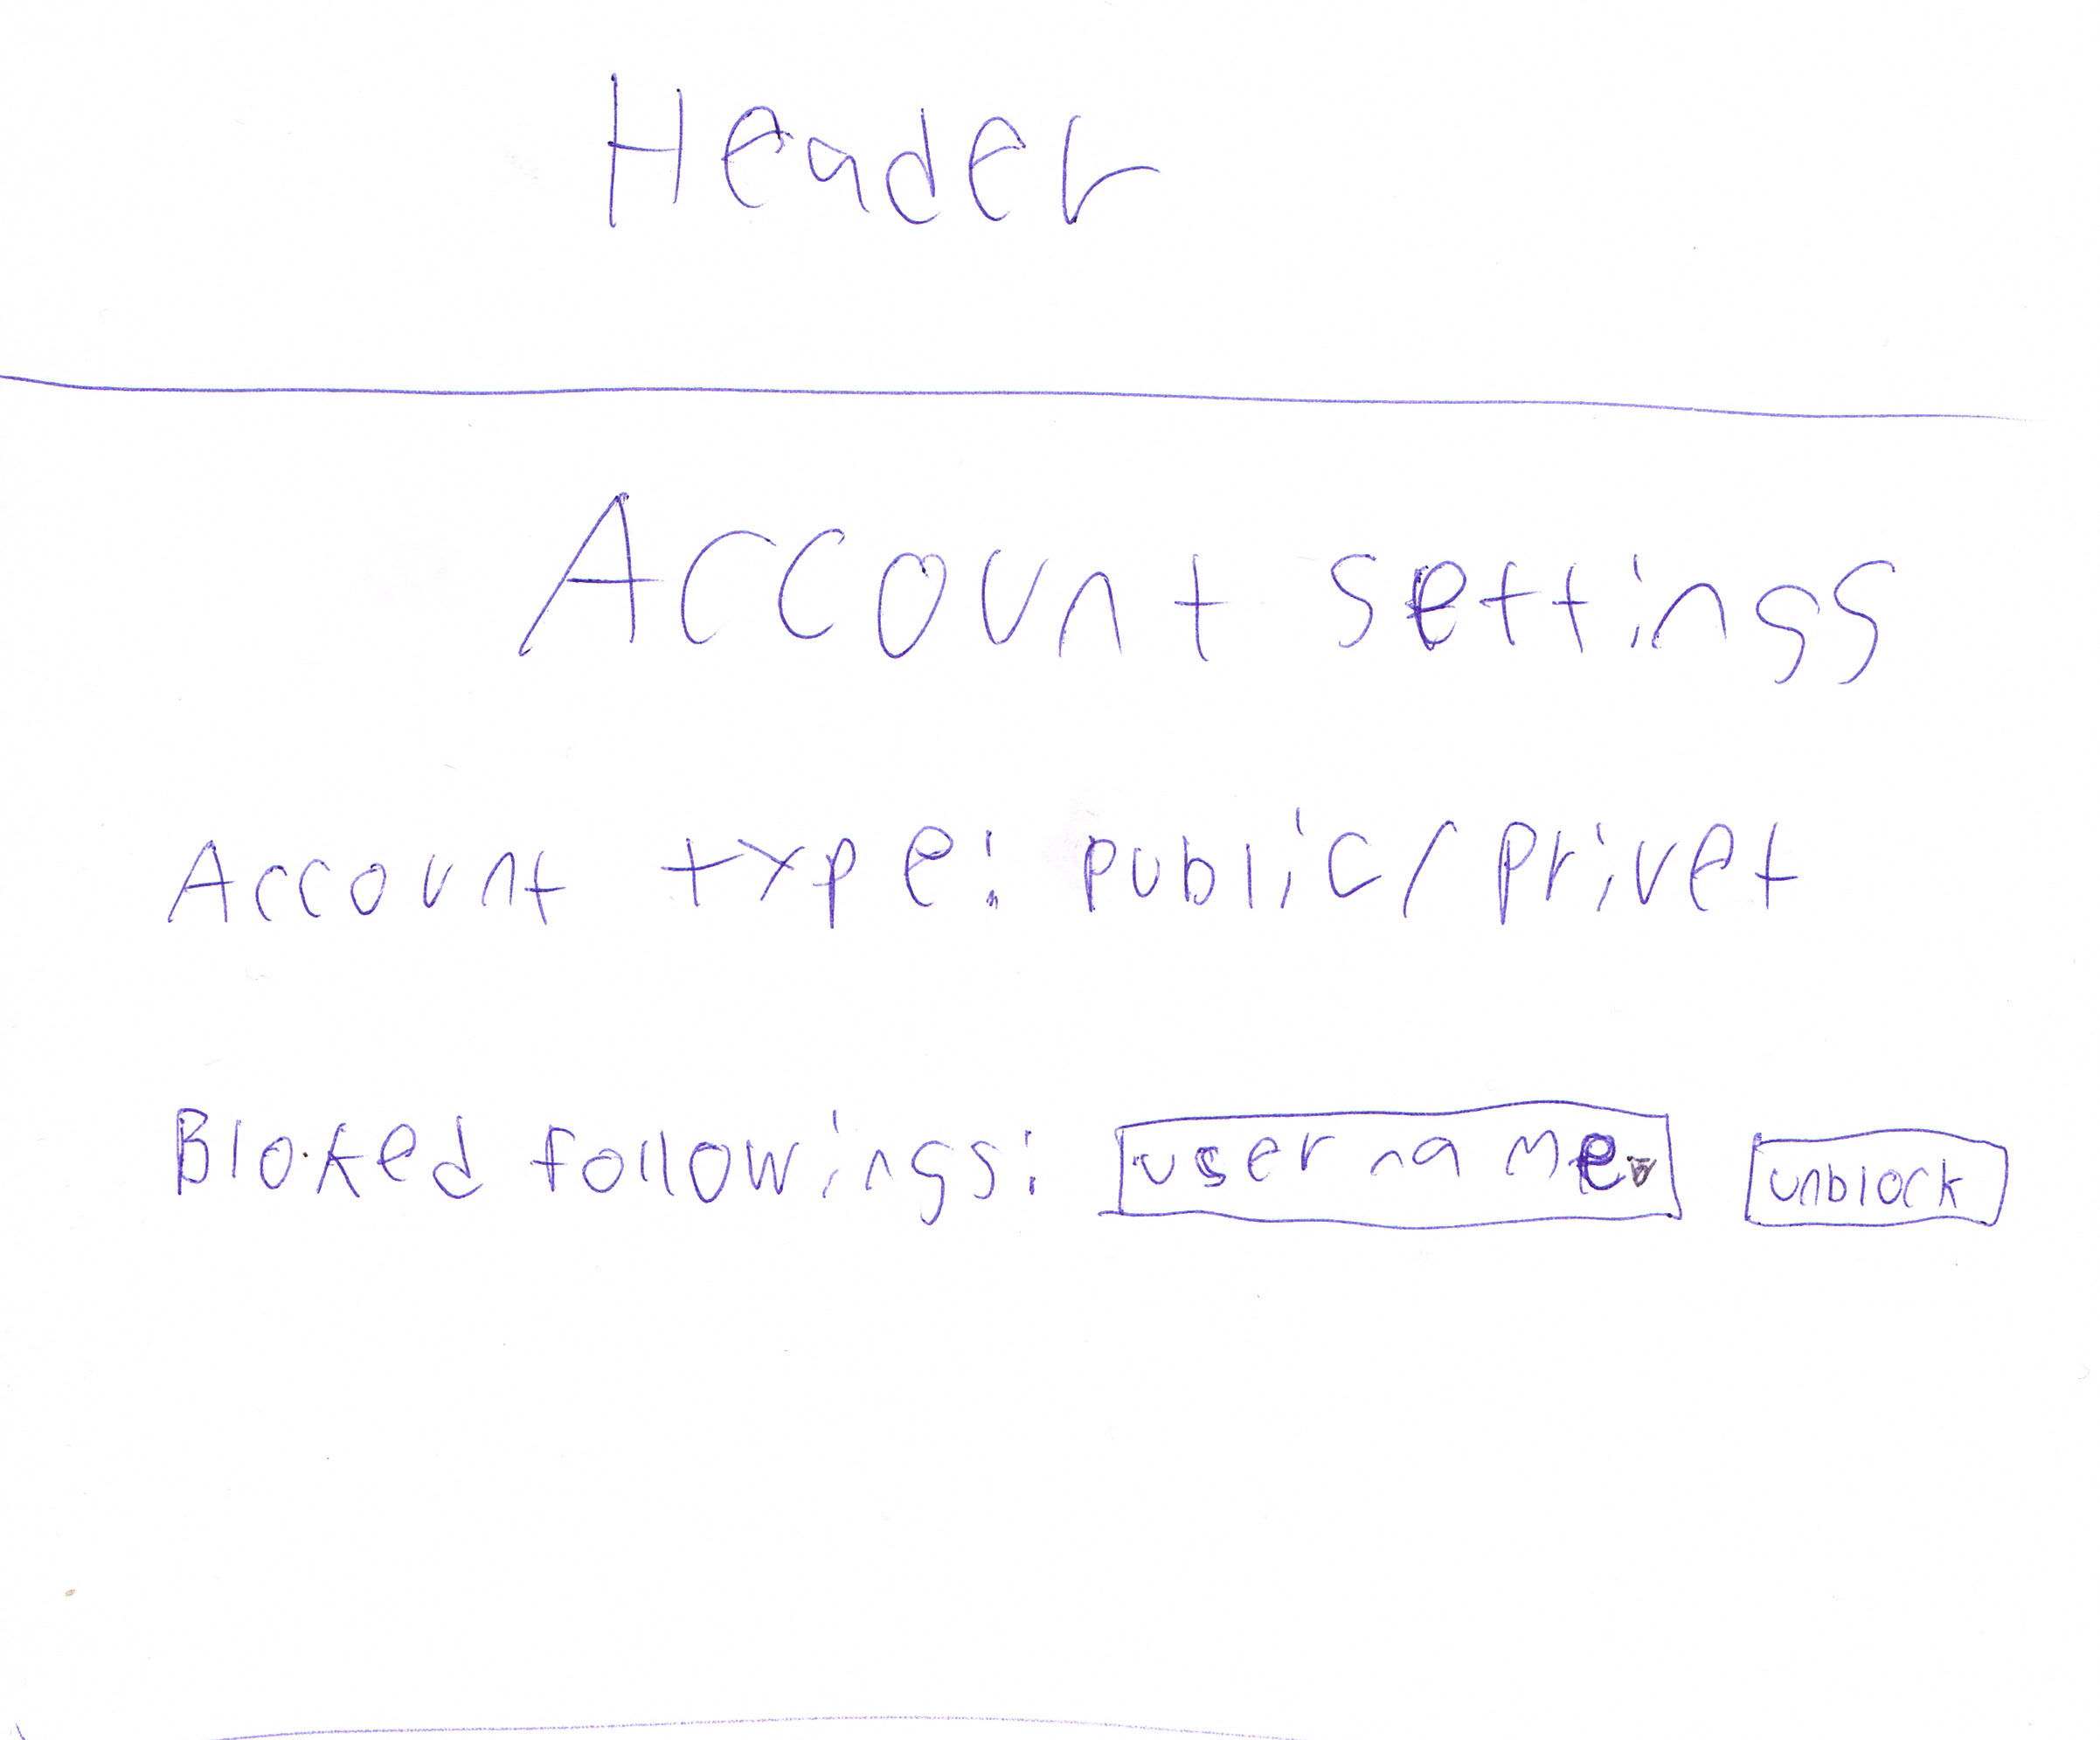 Header
Account settings
Account type: public/privet
Bloked followings: user name unblock